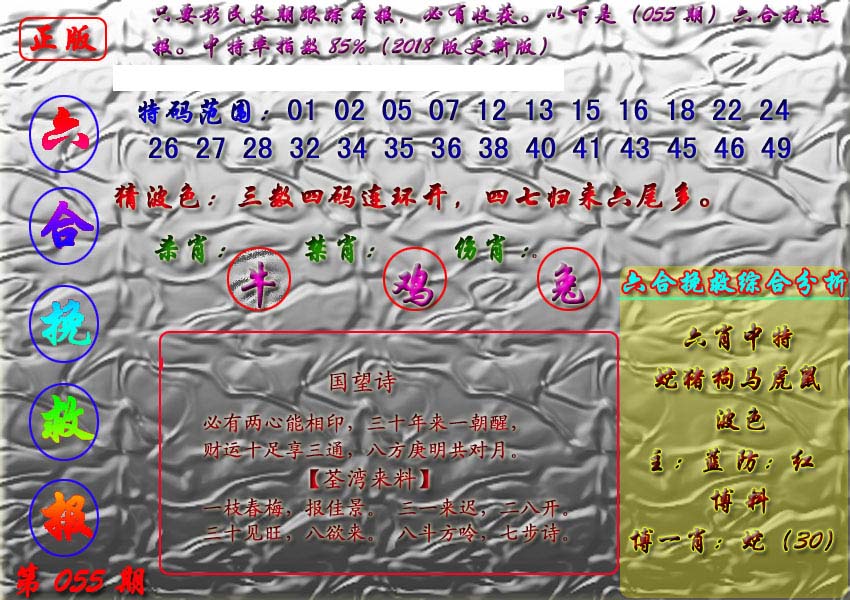 正版
只要彩民长期跟踪本报，必有收获。以下是（055期）六合挽救
报。中特率指数85%（2018版更新版）
六合挽救报
第055期
特码范围：01 02 05 07 12 13 15 16 18 22 24
26 27 28 32 34 35 36 38 40 41 43 45 46 49
猜波色：三数四码连环开，四七归来六尾多。
杀肖：牛 禁肖：鸡 伤肖：。兔
国望诗
必有两心能相印，三十年来一朝醒，
财运十足享三通，八方庚明共对月。
【荃湾来料】
一枝春梅，报佳景。 三一来迟，二八开。
三十见旺，八欲来。 八斗方吟，七步诗。
六合挽救综合分析
六肖中特
蛇猪狗马虎鼠
波色
主：蓝防：红
博料
博一肖：蛇（30）